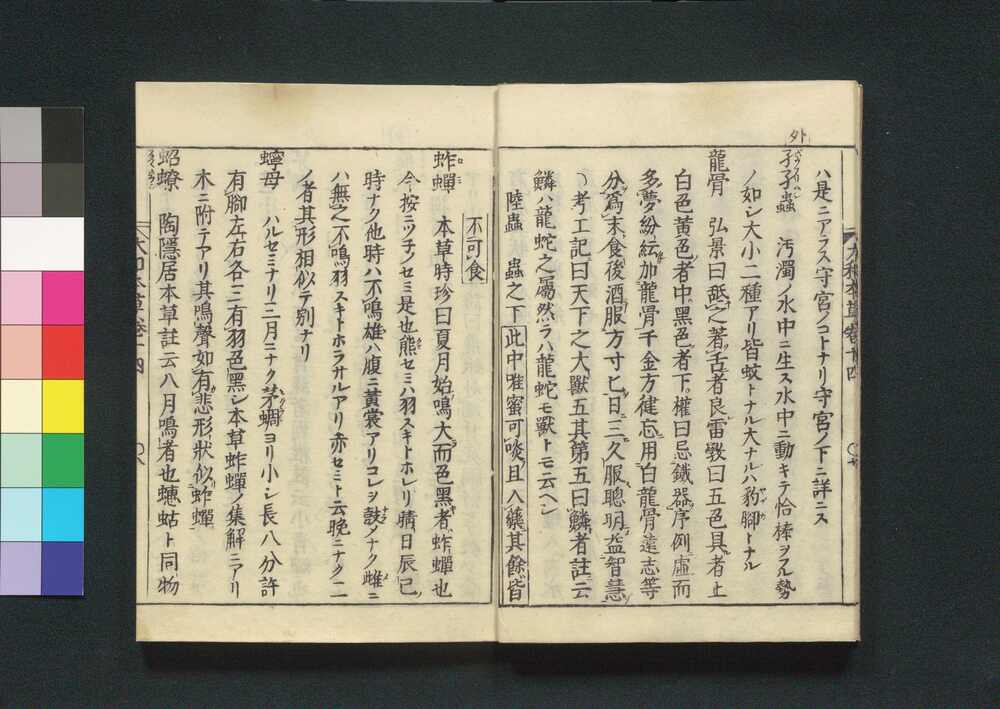 ハ是ニアラス守宮ノコトナリ守宮ノ下ニ詳ニス
外
孑孑蟲 汚濁ノ水中ニ生ス水中ニ動キテ恰棒ヲフル勢
ノ如シ大小二種アリ皆蚊トナル大ナルハ豹脚トナル
龍骨 弘景曰舐之著舌者良雷斅曰五色具者上
白色黄色者中黒色者下權曰忌鐵器序例虛而
多夢紛紜加龍骨千金方健忘用白龍骨遠志等
分爲末食後酒服方寸匕日三久服聰明益智慧
考工記曰天下之大獸五其第五曰鱗者註云
鱗ハ龍蛇之屬然ラハ龍蛇モ獸トモ云ヘシ
陸蟲 蟲之下 此中唯蜜可啖且入藥其餘皆
不可食
蚱蟬 本草時珍曰夏月始鳴大而色黑者蚱蟬也
今按ニツチノセミ是也熊セミハ羽スキトホレリ晴日辰巳ノ
時ナク他時ハ不鳴雄ハ腹ニ黄裳アリコレヲ鼓メナク雌ニ
ハ無之不鳴羽スキトホラサルアリ赤セミト云晚ニナク二
ノ者其形相似テ別ナリ
蠑母 ハルセミナリ三月ニナク茅蜩ヨリ小シ長八分許
有脚左右各三有羽色黑シ本草蚱蟬ノ集解ニアリ
木ニ附テアリ其鳴聲如有悲形狀似蚱蟬
蛁蟟 陶隱居本草註云八月鳴者也蟪蛄ト同物
大和本草卷十四